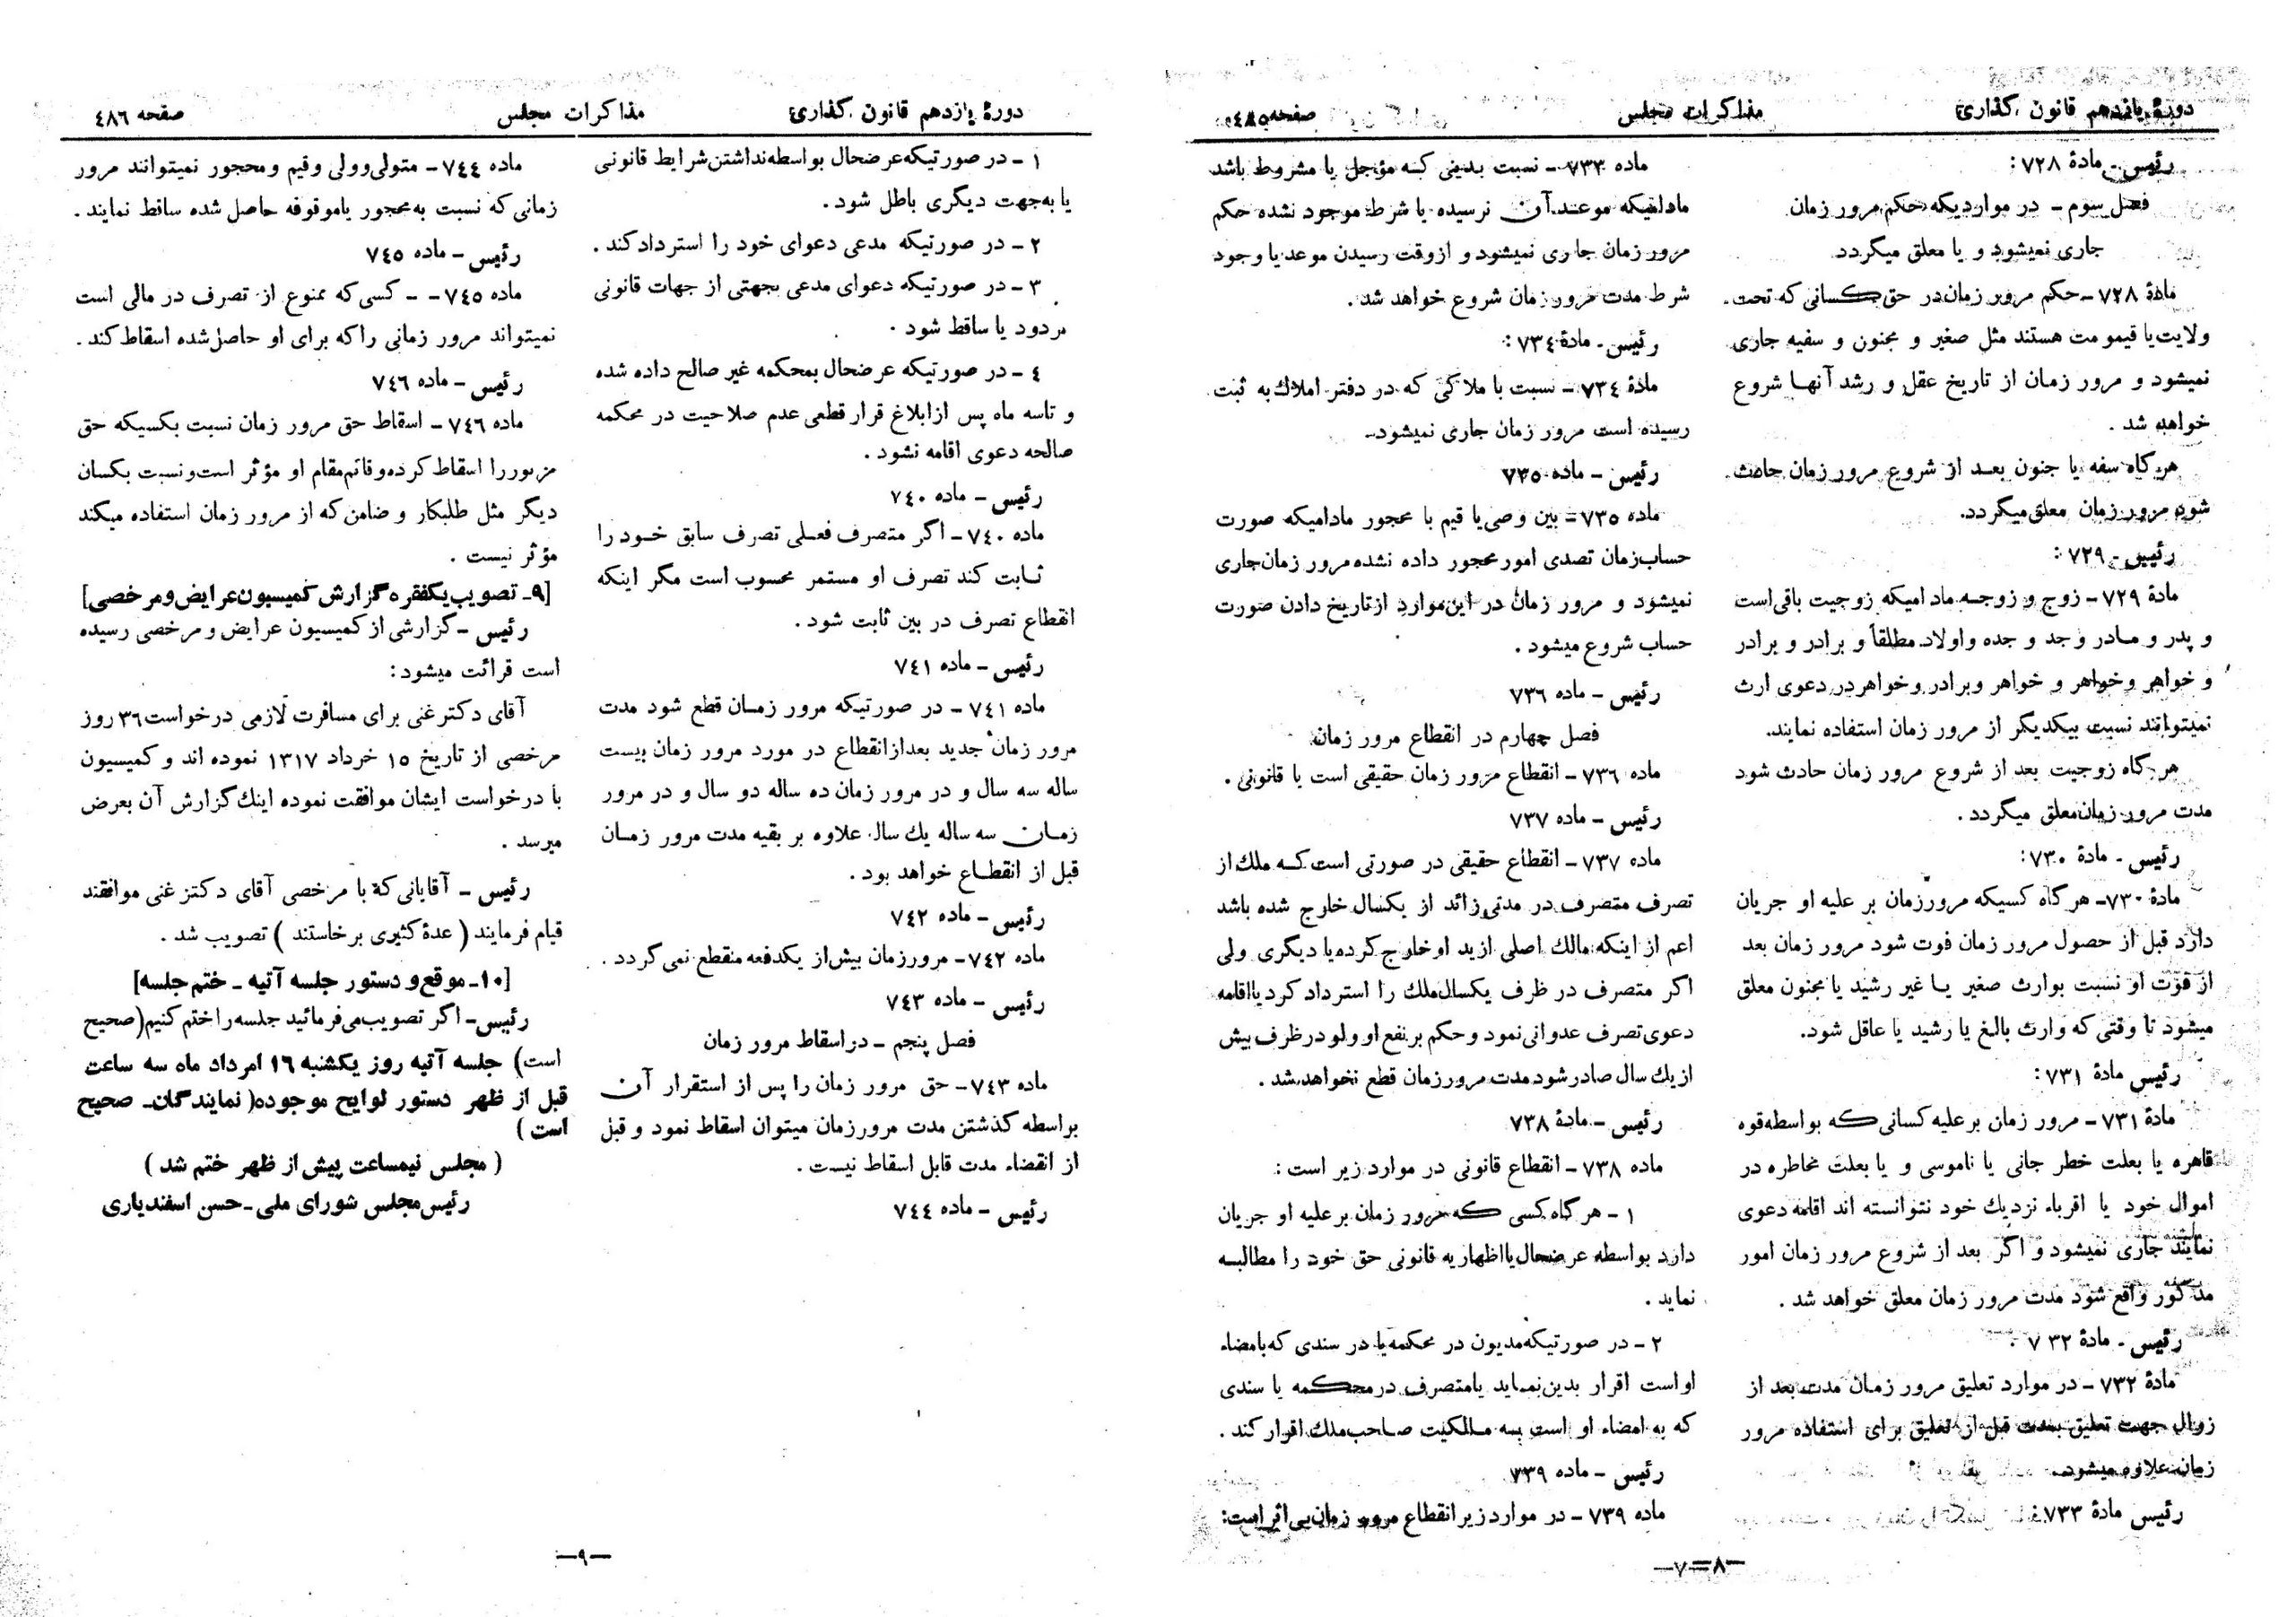 دورهٔ یازدهم قانون گذاری
مذاکرات مجلس
صفحه ٤٨٥
رئیس - مادهٔ ٧٢٨:
فصل سوم - در مواردیکه حکم مرور زمان
جاری نمیشود و یا معلق میگردد
مادهٔ ٧٢٨ - حکم مرور زمان در حق کسانی که تحت
ولایت یا قیمومت هستند مثل صغیر و مجنون و سفیه جاری
نمیشود و مرور زمان از تاریخ عقل و رشد آنها شروع
خواهد شد .
هر گاه سفه یا جنون بعد از شروع مرور زمان حادث
شود مرور زمان معلق میگردد.
رئیس - ٧٢٩:
مادهٔ ٧٢٩ - زوج و زوجه مادامیکه زوجیت باقی است
و پدر و مادر و جد و جده و اولاد مطلقاً و برادر و برادر
و خواهر و خواهر و خواهر و برادر و خواهر در دعوی ارث
نمیتوانند نسبت بیکدیگر از مرور زمان استفاده نمایند.
هر گاه زوجیت بعد از شروع مرور زمان حادث شود
مدت مرور زمان معلق میگردد .
رئیس - مادهٔ ٧٣٠:
مادهٔ ٧٣٠ - هر گاه کسیکه مرور زمان بر علیه او جریان
دارد قبل از حصول مرور زمان فوت شود مرور زمان بعد
از فوت او نسبت بوارث صغیر یا غیر رشید یا مجنون معلق
میشود تا وقتی که وارث بالغ یا رشید یا عاقل شود.
رئیس مادهٔ ٧٣١:
مادهٔ ٧٣١ - مرور زمان بر علیه کسانی که بواسطه قوه
قاهره یا بعلت خطر جانی یا ناموسی و یا بعلت مخاطره در
اموال خود یا اقرباء نزدیك خود نتوانسته اند اقامه دعوی
نمایند جاری نمیشود و اگر بعد از شروع مرور زمان امور
مذکور واقع شود مدت مرور زمان معلق خواهد شد .
رئیس - مادهٔ ٧٣٢ :
مادهٔ ٧٣٢ - در موارد تعلیق مرور زمان مدت بعد از
زوال جهت تعلیق بمدت قبل از تعلیق برای استفاده مرور
زمان علاوه میشود.
رئیس مادهٔ ٧٣٣
ماده ٧٣٣ - نسبت بدینی که مؤجل یا مشروط باشد
مادامیکه موعد آن نرسیده یا شرط موجود نشده حکم
مرور زمان جاری نمیشود و از وقت رسیدن موعد یا وجود
شرط مدت مرور زمان شروع خواهد شد .
رئیس - مادهٔ ٧٣٤ :
مادهٔ ٧٣٤ - نسبت با ملاکی که در دفتر املاك به ثبت
رسیده است مرور زمان جاری نمیشود-
رئیس - ماده ٧٣٥
ماده ٧٣٥ = بین وصی یا قیم با محجور مادامیکه صورت
حساب زمان تصدی امور محجور داده نشده مرور زمان جاری
نمیشود و مرور زمان در این موارد از تاریخ دادن صورت
حساب شروع میشود .
رئیس - ماده ٧٣٦
فصل چهارم در انقطاع مرور زمان
ماده ٧٣٦ - انقطاع مرور زمان حقیقی است یا قانونی .
رئیس - ماده ٧٣٧
ماده ٧٣٧ - انقطاع حقیقی در صورتی است که ملك از
تصرف متصرف در مدتی زائد از یکسال خارج شده باشد
اعم از اینکه مالك اصلی از ید او خارج کرده یا دیگری ولی
اگر متصرف در ظرف یکسال ملك را استرداد کرد یا اقامه
دعوی تصرف عدوانی نمود و حکم بر نفع او ولو در ظرف بیش
از یك سال صادر شود مدت مرور زمان قطع نخواهد شد .
رئیس - مادهٔ ٧٣٨
ماده ٧٣٨ - انقطاع قانونی در موارد زیر است :
١ - هر گاه کسی که مرور زمان بر علیه او جریان
دارد بواسطه عرضحال یا اظهاریه قانونی حق خود را مطالبه
نماید .
٢ - در صورتیکه مدیون در محکمه یا در سندی که بامضاء
او است اقرار بدین نماید یا متصرف در محکمه یا سندی
که به امضاء او است به مالکیت صاحب ملك اقرار کند .
رئیس - ماده ٧٣٩
ماده ٧٣٩ - در موارد زیر انقطاع مرور زمان بی اثر است:
—٨=٧—
دورهٔ یازدهم قانون گذاری
مذاکرات مجلس
صفحه ٤٨٦
١ - در صورتیکه عرضحال بواسطه نداشتن شرایط قانونی
یا به جهت دیگری باطل شود .
٢ - در صورتیکه مدعی دعوای خود را استرداد کند .
٣ - در صورتیکه دعوای مدعی بجهتی از جهات قانونی
مردود یا ساقط شود .
٤ - در صورتیکه عرضحال بمحکمه غیر صالح داده شده
و تاسه ماه پس از ابلاغ قرار قطعی عدم صلاحیت در محکمه
صالحه دعوی اقامه نشود .
رئیس - ماده ٧٤٠
ماده ٧٤٠ - اگر متصرف فعلی تصرف سابق خود را
ثابت کند تصرف او مستمر محسوب است مگر اینکه
انقطاع تصرف در بین ثابت شود .
رئیس - ماده ٧٤١
ماده ٧٤١ - در صورتیکه مرور زمان قطع شود مدت
مرور زمان جدید بعد از انقطاع در مورد مرور زمان بیست
ساله سه سال و در مرور زمان ده ساله دو سال و در مرور
زمان سه ساله یك سال علاوه بر بقیه مدت مرور زمان
قبل از انقطاع خواهد بود .
رئیس - ماده ٧٤٢
ماده ٧٤٢ - مرور زمان بیش از یکدفعه منقطع نمی گردد .
رئیس - ماده ٧٤٣
فصل پنجم - در اسقاط مرور زمان
ماده ٧٤٣ - حق مرور زمان را پس از استقرار آن
بواسطه گذشتن مدت مرور زمان میتوان اسقاط نمود و قبل
از انقضاء مدت قابل اسقاط نیست .
رئیس - ماده ٧٤٤
ماده ٧٤٤ - متولی و ولی و قیم و محجور نمیتوانند مرور
زمانی که نسبت به محجور یا موقوفه حاصل شده ساقط نمایند .
رئیس - ماده ٧٤٥
ماده ٧٤٥ - - کسی که ممنوع از تصرف در مالی است
نمیتواند مرور زمانی را که برای او حاصل شده اسقاط کند .
رئیس - ماده ٧٤٦
ماده ٧٤٦ - اسقاط حق مرور زمان نسبت بکسیکه حق
مزبور را اسقاط کرده و قائم مقام او مؤثر است و نسبت بکسان
دیگر مثل طلبکار و ضامن که از مرور زمان استفاده میکند
مؤثر نیست .
[٩- تصویب یکفقره گزارش کمیسیون عرایض و مرخصی]
رئیس - گزارشی از کمیسیون عرایض و مرخصی رسیده
است قرائت میشود :
آقای دکتر غنی برای مسافرت لازمی درخواست ٣٦ روز
مرخصی از تاریخ ١٥ خرداد ١٣١٧ نموده اند و کمیسیون
با درخواست ایشان موافقت نموده اینك گزارش آن بعرض
میرسد .
رئیس - آقایانی که با مرخصی آقای دکتر غنی موافقند
قیام فرمایند ( عدهٔ کثیری برخاستند ) تصویب شد .
[١٠- موقع و دستور جلسه آتیه - ختم جلسه]
رئیس - اگر تصویب می فرمائید جلسه را ختم کنیم (صحیح
است) جلسه آتیه روز یکشنبه ١٦ امرداد ماه سه ساعت
قبل از ظهر دستور لوایح موجوده (نمایندگان- صحیح
است )
( مجلس نیمساعت پیش از ظهر ختم شد )
رئیس مجلس شورای ملی - حسن اسفندیاری
—٩—